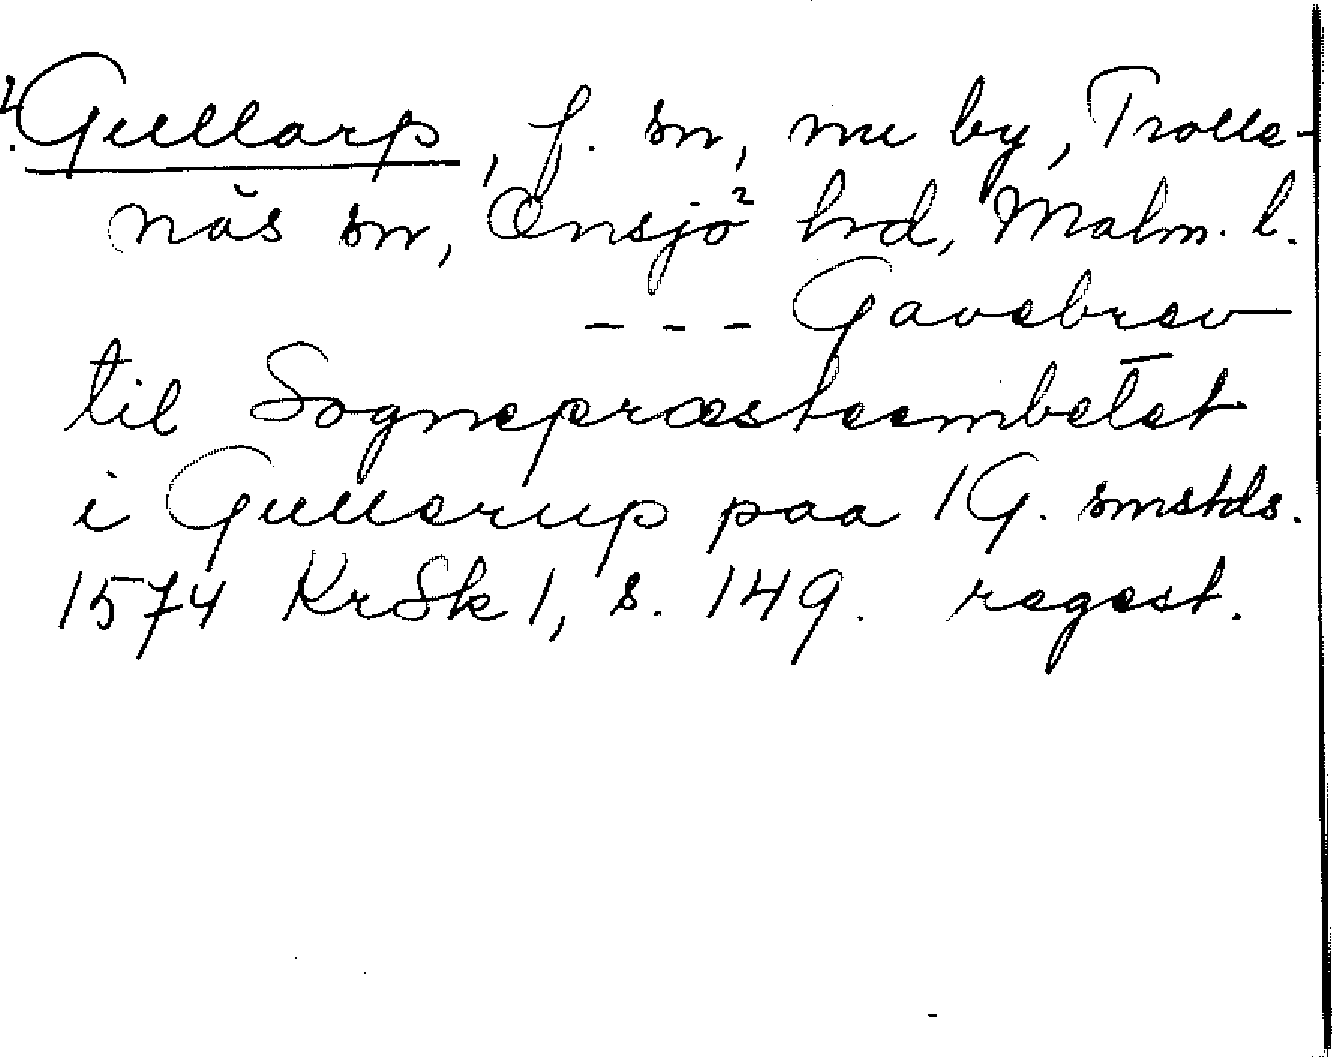 Gullarp, f. sn, nu by, Trolle-
näs sn, Onsjö hd, Malm. l.
- - - Gavebrev
til Sognepræsteembetet
i Gullerup paa 1 G. smstds.
1574 KrSk 1, s. 149. regest.